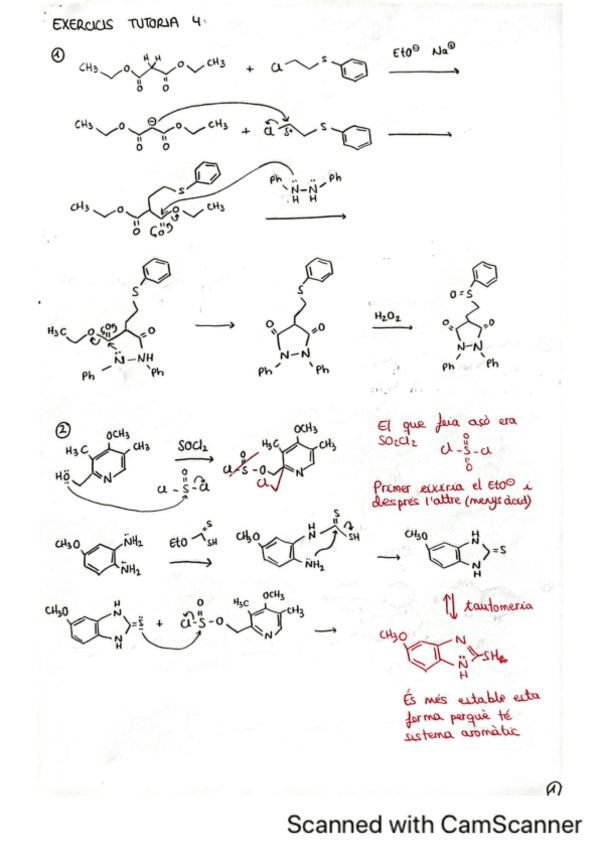 EXERCICIS TUTORIA 4:
①
CH₃ O H H O CH₃ O O + Cl S EtO⊖ Na⊕
CH₃ O ⊖ O CH₃ O O + Cl δ+ S
CH₃ O O CH₃ O O S Ph N N Ph H H
S H₃C O O O N NH Ph Ph
S O O N N Ph Ph
H₂O₂
O=S O O N N Ph Ph
②
HÖ H₃C OCH₃ CH₃ N SOCl₂ Cl-S-Cl O O
Cl S O O H₃C OCH₃ CH₃ N Cl
El que feia açò era
SO₂Cl₂
O
Cl-S-Cl
O
Primer eixiria el EtO⊖ i
després l'altre (menys àcid)
CH₃O NH₂ NH₂ EtO S SH CH₃O H N S SH NH₂ CH₃O H N N H =S
tautomeria
CH₃O H N N H S + Cl-S-O O O H₃C OCH₃ CH₃ N
CH₃O N N H SH
És més estable esta
forma perquè té
sistema aromàtic
①
Scanned with CamScanner